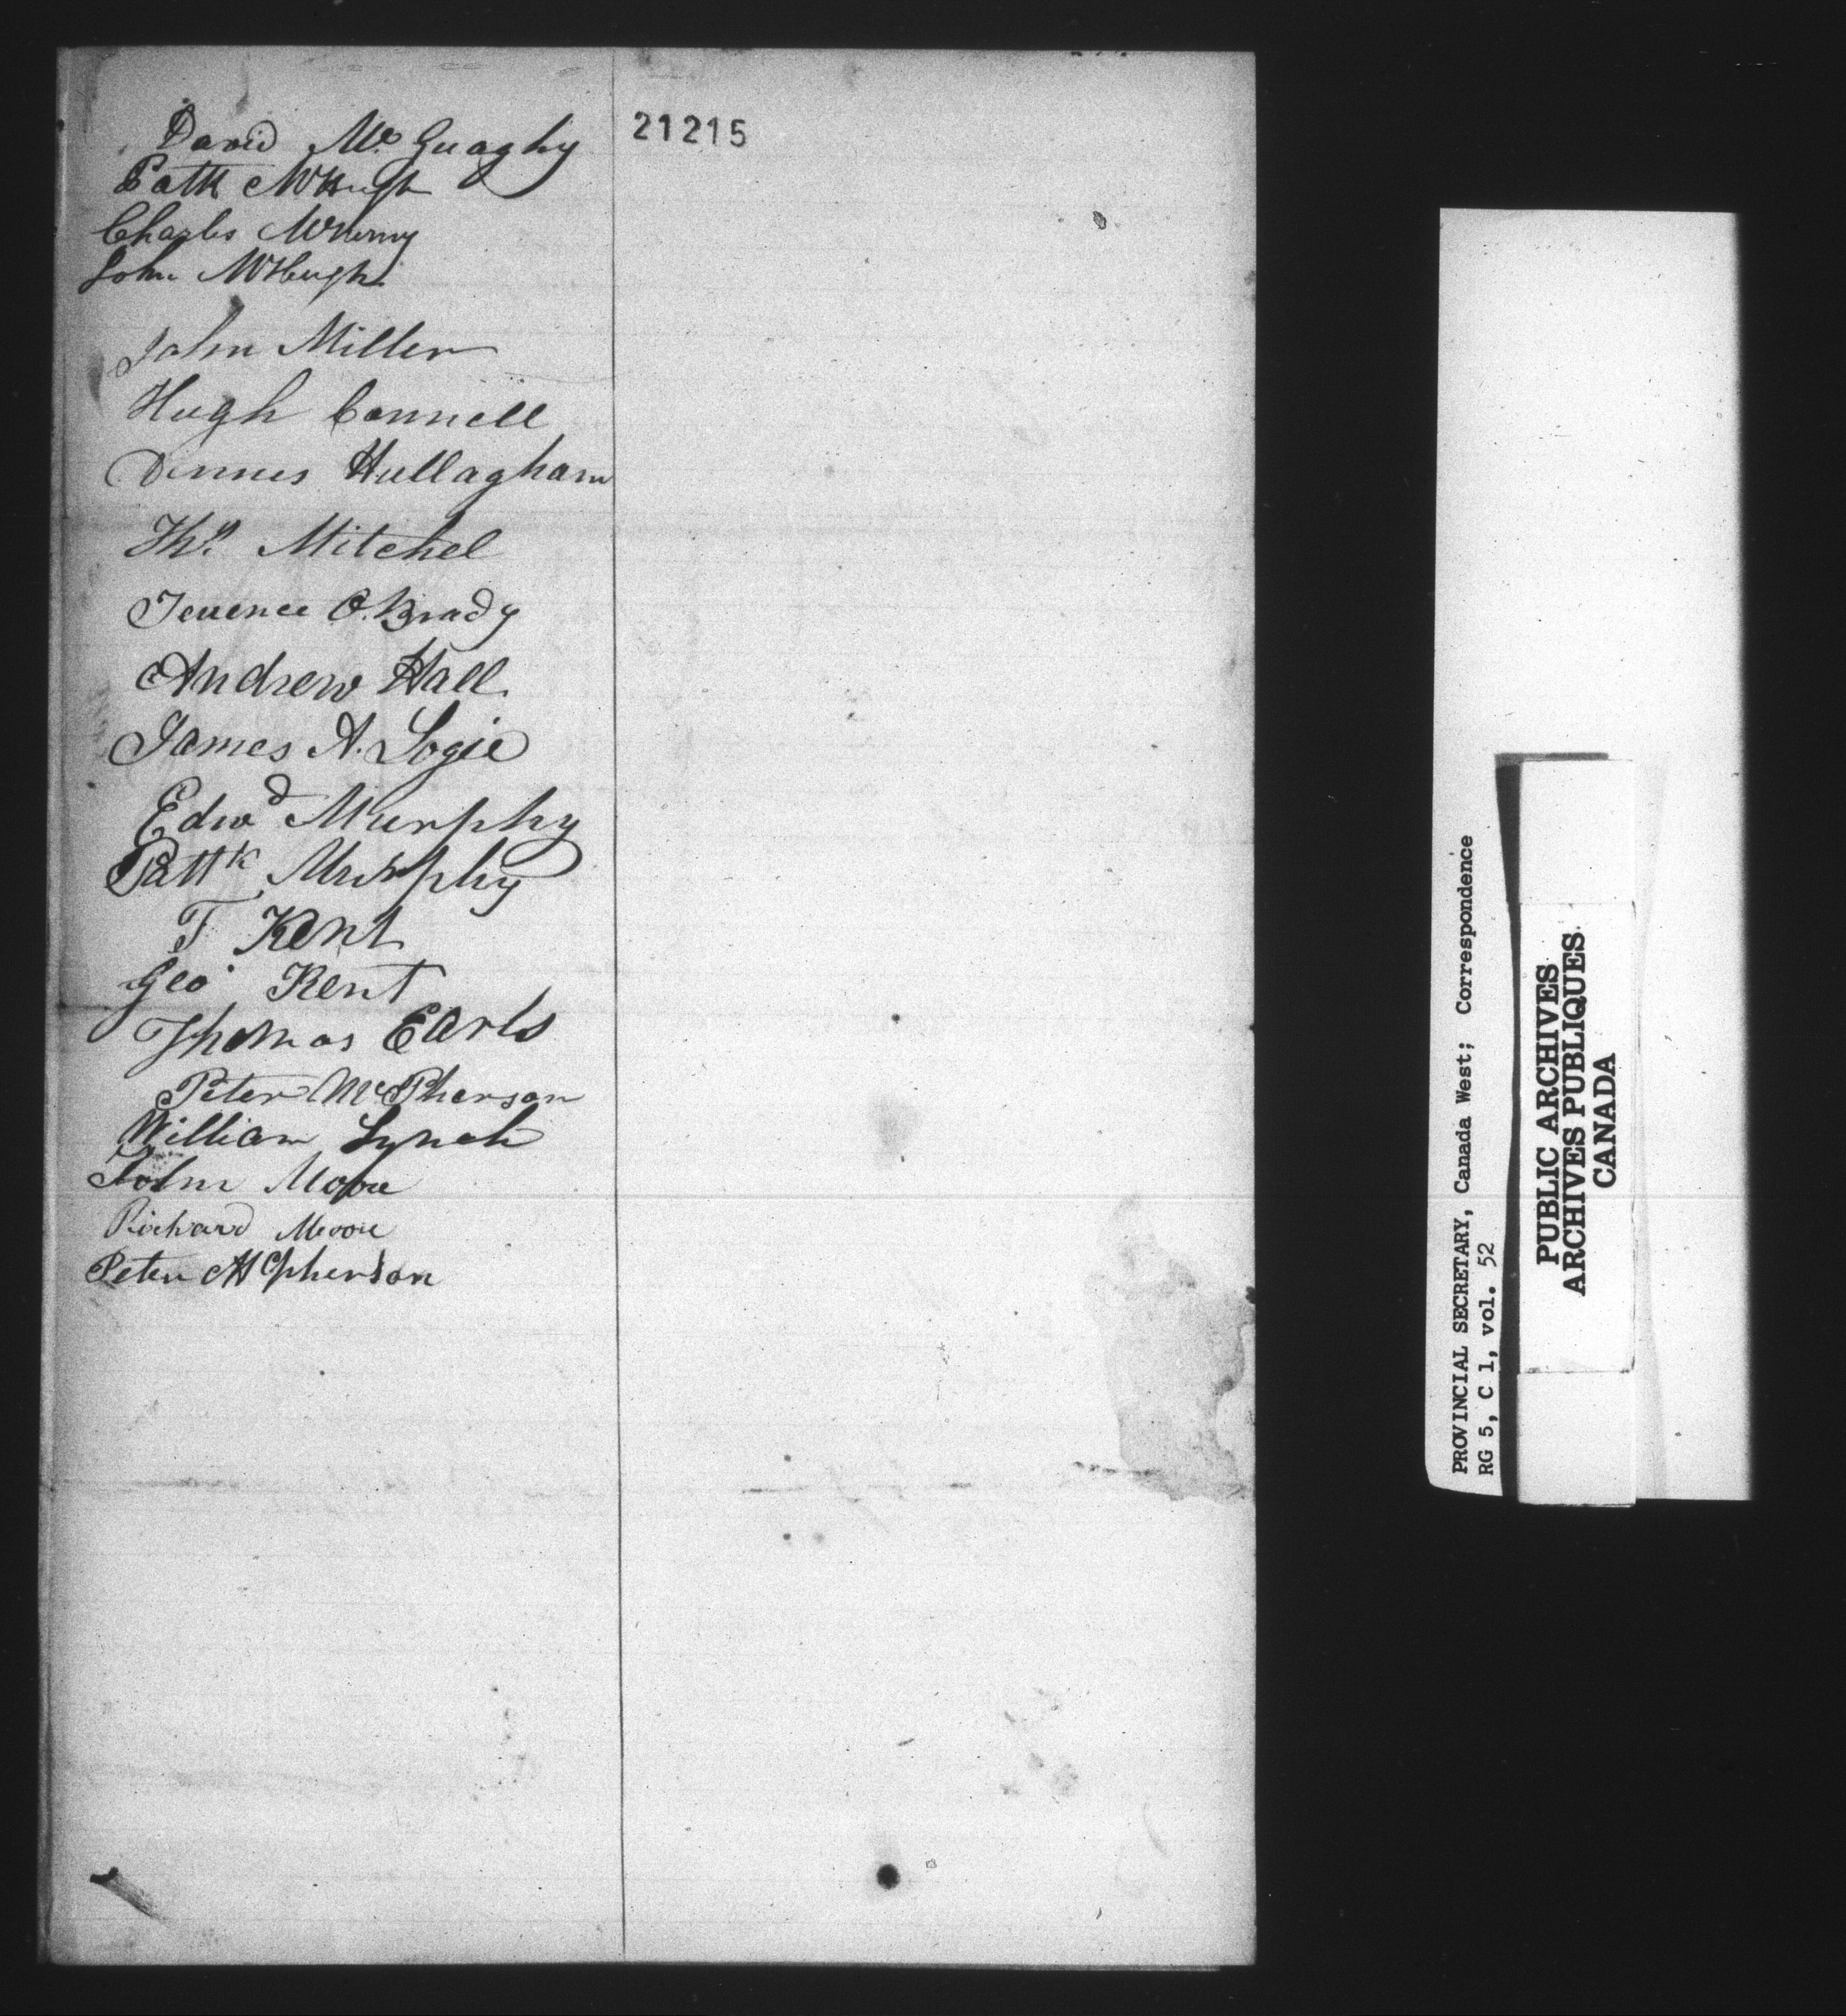 David Mc Guaghy
21215
Patk McHugh
Charles
John McHugh
John Miller
Hugh Connell
Dennis Hullagham
Thos Mitchel
Terrence O.Brady
Andrew Hall.
James A. Logie
Edwd Murphy
Pattk Murphy
T Kent
Geo Kent
Thomas Earls
Peter McPherson
William Lynch
John Moore
Richard Moore
Peter McPherson
PROVINCIAL SECRETARY, Canada West; Correspondence
RG 5, C 1, vol. 52
PUBLIC ARCHIVES
ARCHIVES PUBLIQUES
CANADA